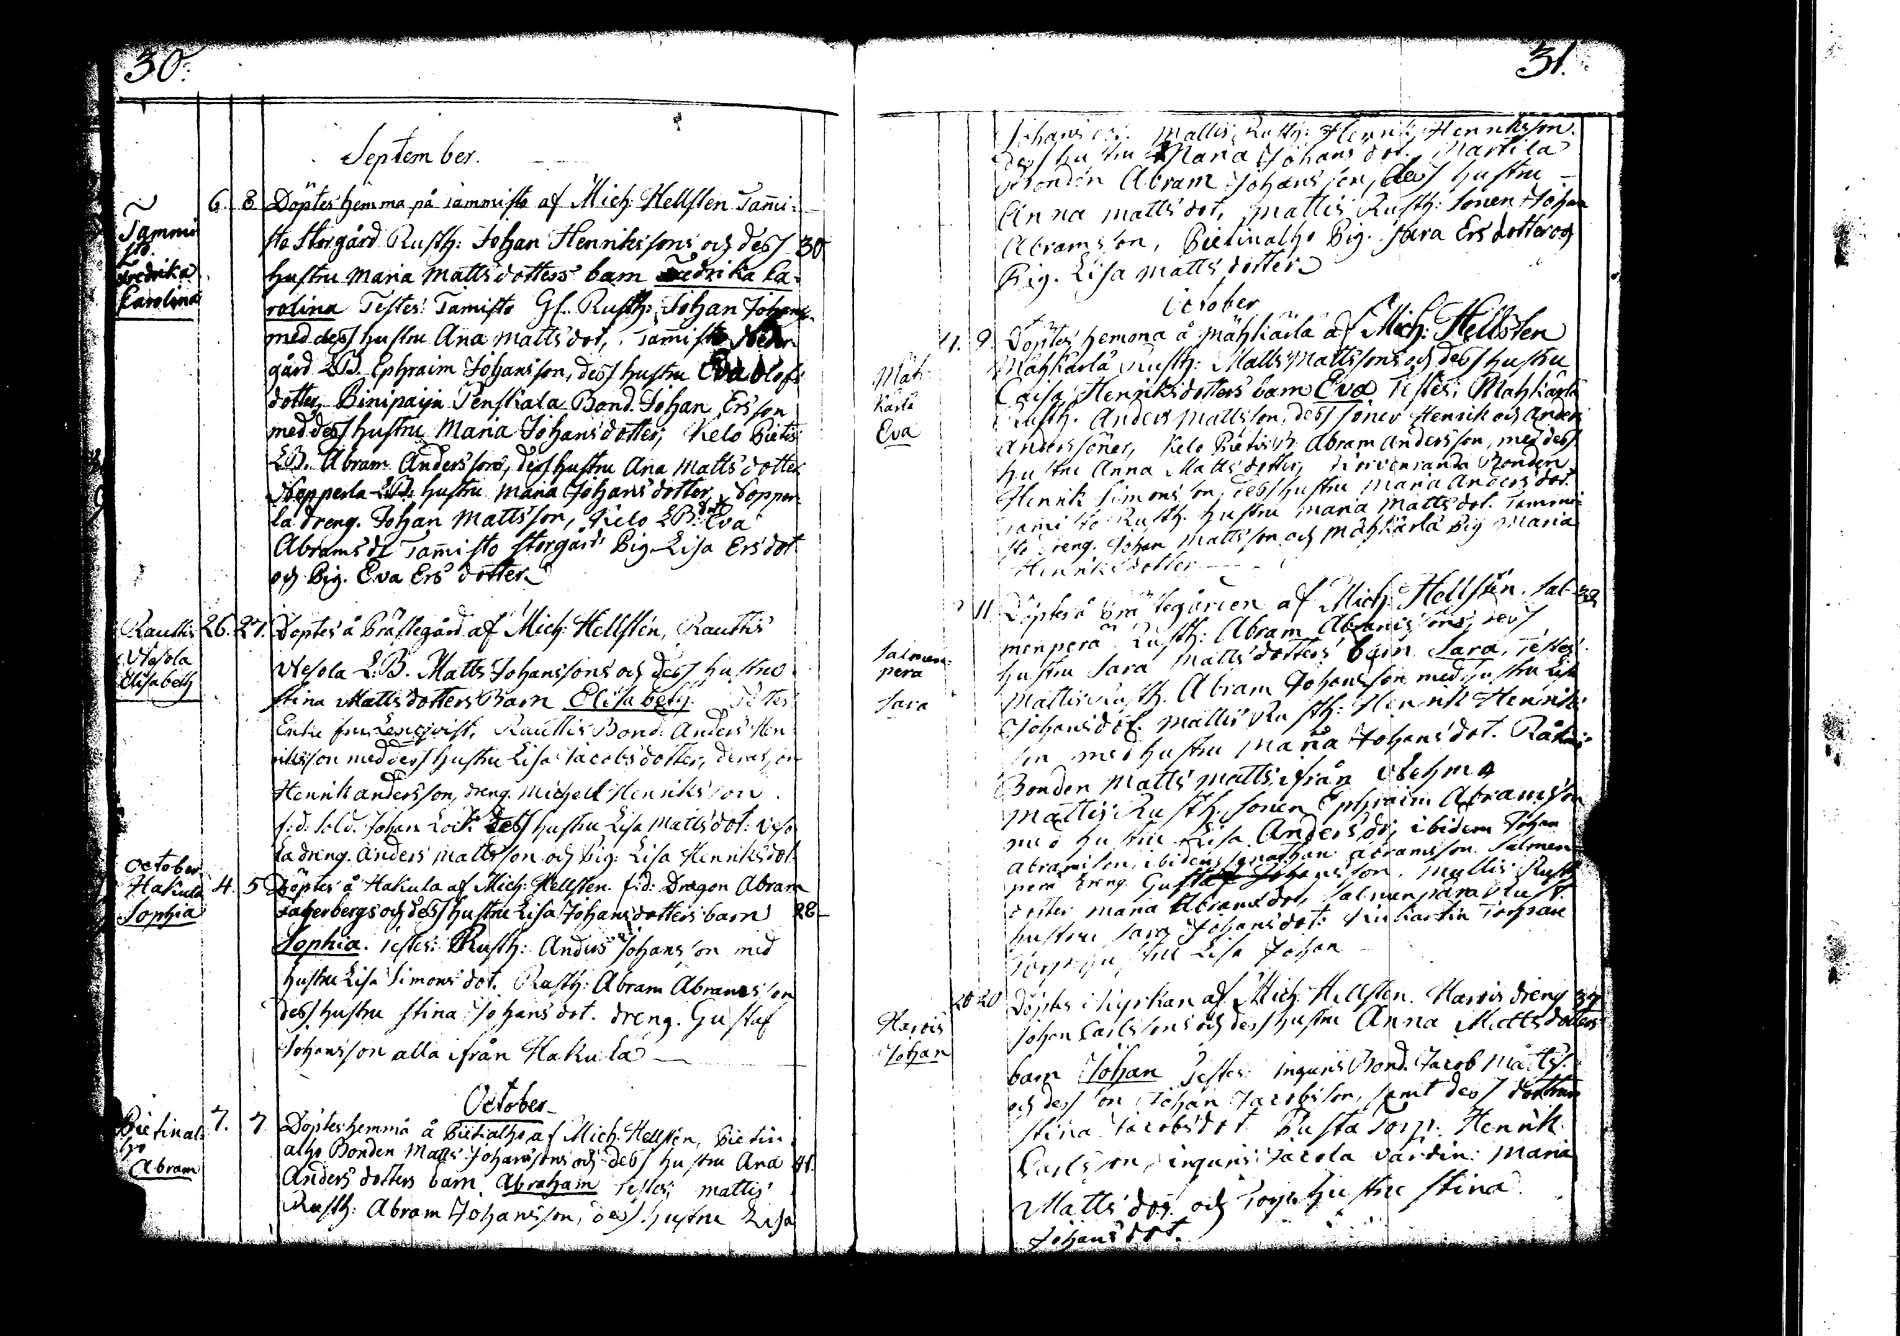 30.
September.
Tammi
sto.
Fredrika
Carolina
6. 8 Döptes hemma på Tammisto af Mich: Hellsten Tam̄i-
sto Storgård Rusth: Johan Henrikssons och dess 30
hustru Maria Matts dotters barn Fredrika Ca-
rolina Testes: Tamisto Gf. Rusth: Johan Johans
med dess hustru Ana Matts dot, Tam̄isto
gård LB. Ephraim Johansson, dess hustru Eva Olofs
dotter, Binipaija Tenskala Bond. Johan Ersson
med dess hustru Maria Johans dotter, Kelo Pietis
LB. Abram Anderssons, dess hustru Ana Matts dotter
Nopperla LB. hustru Maria Johans dotter, Nopper
la dreng. Johan Mattsson, Kelo LB: dot Eva
Abrams dr Tam̄isto Storgårds Pig. Lisa Ers dot
och Pig. Eva Ers dotter.
Rauttis
Vesola
Elisabeth
26. 27. Döptes å Prästegård af Mich: Hellsten, Rauttis
Vesola L:B. Matts Johanssons och dess hustru
Stina Matts dotters Barn Elisabeth. Testes
Enke fru Lenqvist, Rauttis Bond: Anders Hen
riksson med dess hustru Lisa Jacobs dotter, deras son
Henrik andersson, dreng. Michell Henriksson
f:d: Sold. Johan Lock dess hustru Lisa Matts dot: Veso
la dreng. Anders Mattsson och Pig: Lisa Henriks dot.
October
Hakula
Sophia
4. 5 Döptes å Hakula af Mich: Hellsten. f:d: Dragon Abram
Fagerbergs och dess hustru Lisa Johans dotters barn 28
Sophia. Testes: Rusth: Anders Johansson med
hustru Lisa Simons dot. Rusth: Abram Abramsson
dess hustru Stina Johans dot. dreng. Gustaf
Johansson alla ifrån Hakula
October
Pietinal-
ho
Abram
7. 7 Döptes hemma å Pietialho af Mich. Hellsten, Pietin
alho Bonden Matts Johanssons och dess hustru Ana 41.
Anders dotters barn Abraham Testes: Mattis
Rusth: Abram Johansson, dess hustru Lisa
31.
Johans dot. Mattis Rusth: Henrik Henriksson.
dess hustru Maria Johans dot. Martila
Bonden Abram Johansson, dess hustru
Anna Matts dot, Mattis Rusth: Sonen Johan
Abramsson, Pietinalho Pig. Sara Ers dotter og
Pig. Lisa Matts dotter.
October
Mäh-
kärlä
Eva
4. 9. Döptes hemma å Mähkärlä af Mich: Hellsten
Mähkärlä Rusth: Matts Mattssons och dess hustru
Caisa Henriks dotters barn Eva Testes: Mähkärlä
Rusth. Anders Mattsson, dess söner Henrik och Anders
Anderssöner, Kelo Pietis Abram Andersson, med dess
hustru Anna Matts dotter, Bonden
Henrik Simonsson, dess hustru Maria Anders dot.
Tamisto Rusth. hustru Maria Matts dot. Tammi
sto dreng. Johan Mattsson och Mähkärlä Pig Maria
Henriks dotter
Salmen-
perä
Sara
11 Döptes å Prästegården af Mich: Hellsten. Sal-
menperä Rusth: Abram Abramssons, dess
hustru Sara Matts dotters barn Sara, Testes
Mattis Rusth. Abram Johansson med hustru Lisa
Johans dot. Mattis Rusth: Henrik Henriks
son med hustru Maria Johans dot.
Bonden Matts Matts. ifrån Vehma
Mattis Rusth. Sonen Ephraim Abramsson
med hustru Lisa Anders dr, ibidem Johan
Abramsson, ibidem Jonathan Abramsson. Salmen
perä dreng. Gustaf Johansson. Mattis Rusth
dotter Maria Abrams dot, Salmenperä
hustru Sara Johans dot:
hustru Lisa Johan
Harvis
Johan
20 20 Döptes i kyrkan af Mich: Hellsten. Harvis dreng 37
Johan Carlssons och dess hustru Anna Matts dotters
barn Johan Testes: Inguris Bond. Jacob Matts.
och dess son Johan Jacobsson, samt dess dottrar
Stina Jacobs dot Torp. Henrik
Carlsson, inguris Jacola värdin: Maria
Matts dot och Torpe hustru Stina
Johans dot.